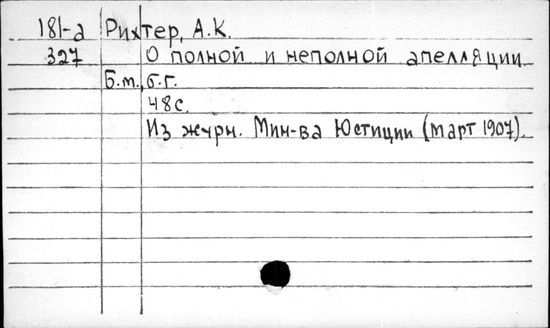 181-а Рихтер, А.К.
327 О полной и неполной апелляции.
Б.т., б.г.
48с.
Из журн. Мин-ва Юстиции (март 1907).